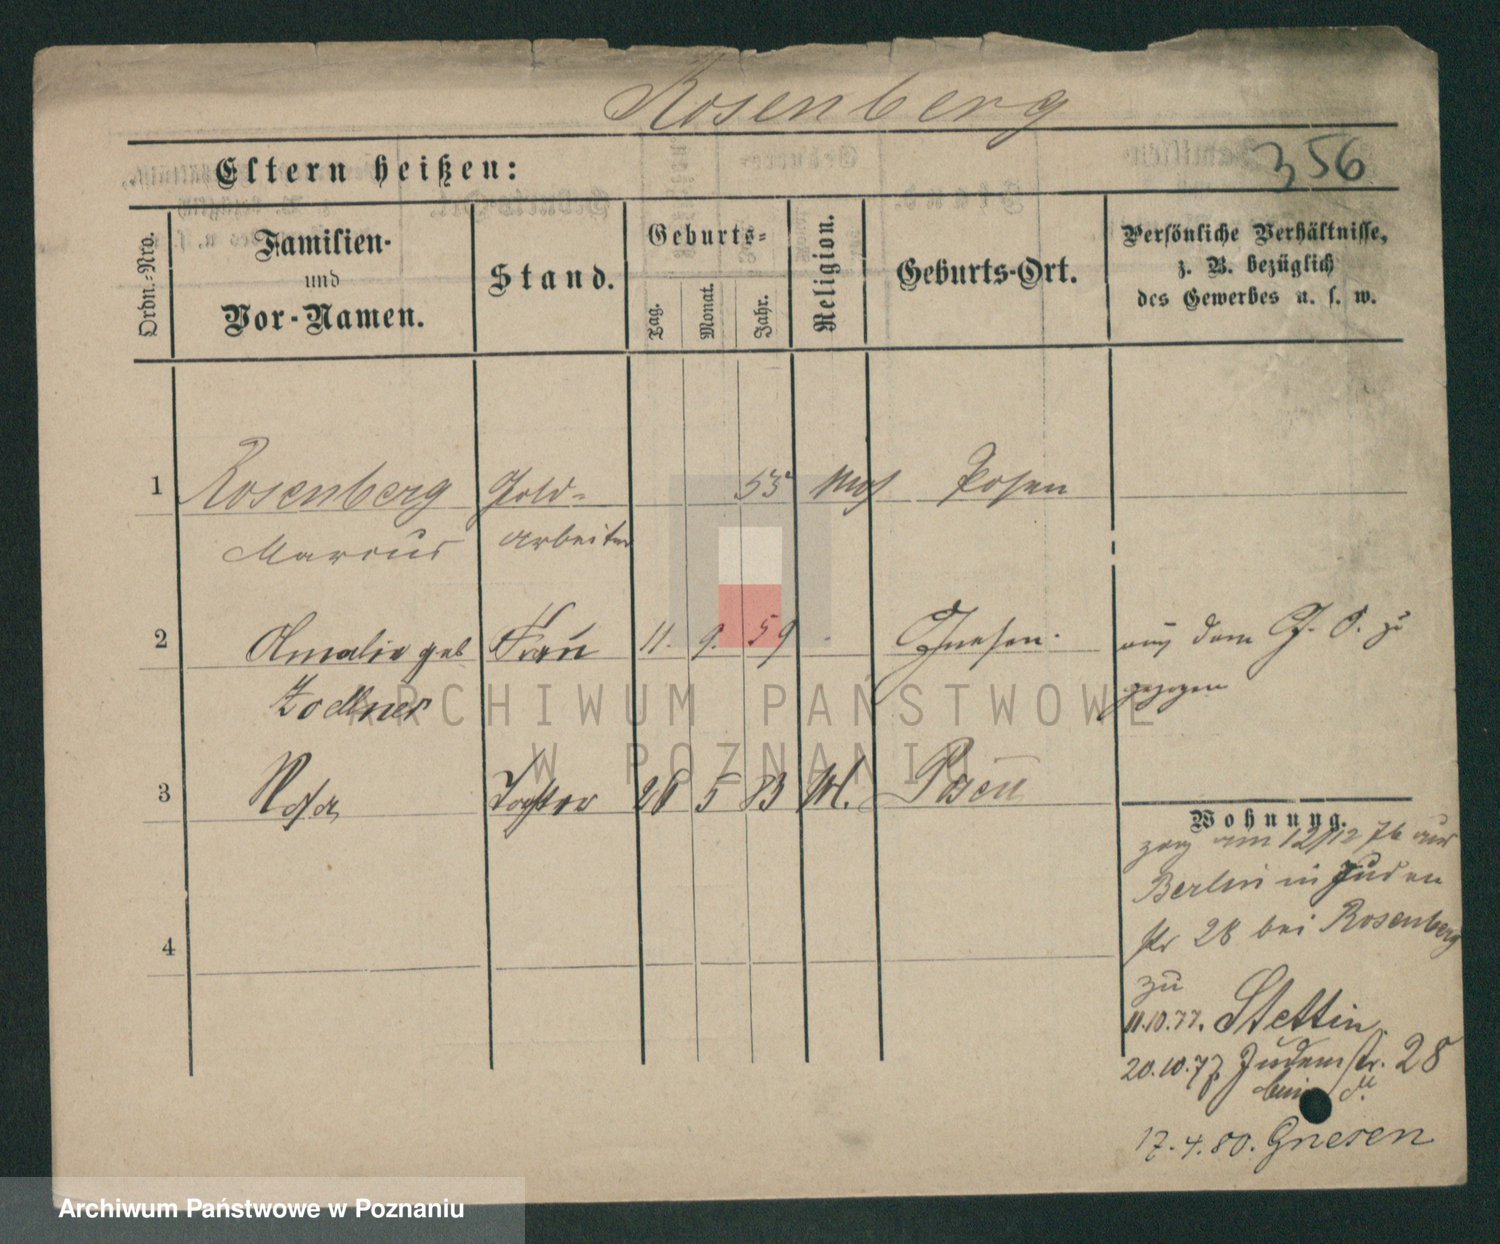 Rosenberg
Eltern heißen:
356
Ordn.-Nro.
Familien-
und
Vor-Namen.
Stand.
Geburts-
Tag.
Monat.
Jahr.
Religion.
Geburts-Ort.
Persönliche Verhältnisse,
z. B. bezüglich
des Gewerbes u. s. w.
1 Rosenberg Gold- 53 mos Posen
Marcus arbeiter
2 Amalie geb Frau 11. 9. 59 Gnesen. aus dem zu
gezogen
3 Rosa Tochter 26 5 83 M. Posen
4
Wohnung.
zog am 12/12 76 aus
Berlin in Juden
str 28 bei Rosenberg
zu
11.10.77. Stettin
20.10.77. Judenstr. 28
beim
17.4.80. Gnesen
ARCHIWUM PAŃSTWOWE
W POZNANIU
Archiwum Państwowe w Poznaniu